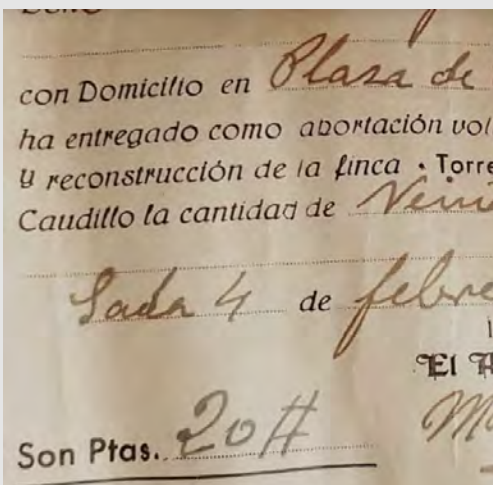 con Domicilio en Plaza de
ha entregado como abortación vol
y reconstrucción de la finca · Torre
Caudillo la cantidad de Vein
Sada 4 de febre
El A
Son Ptas. 20 #